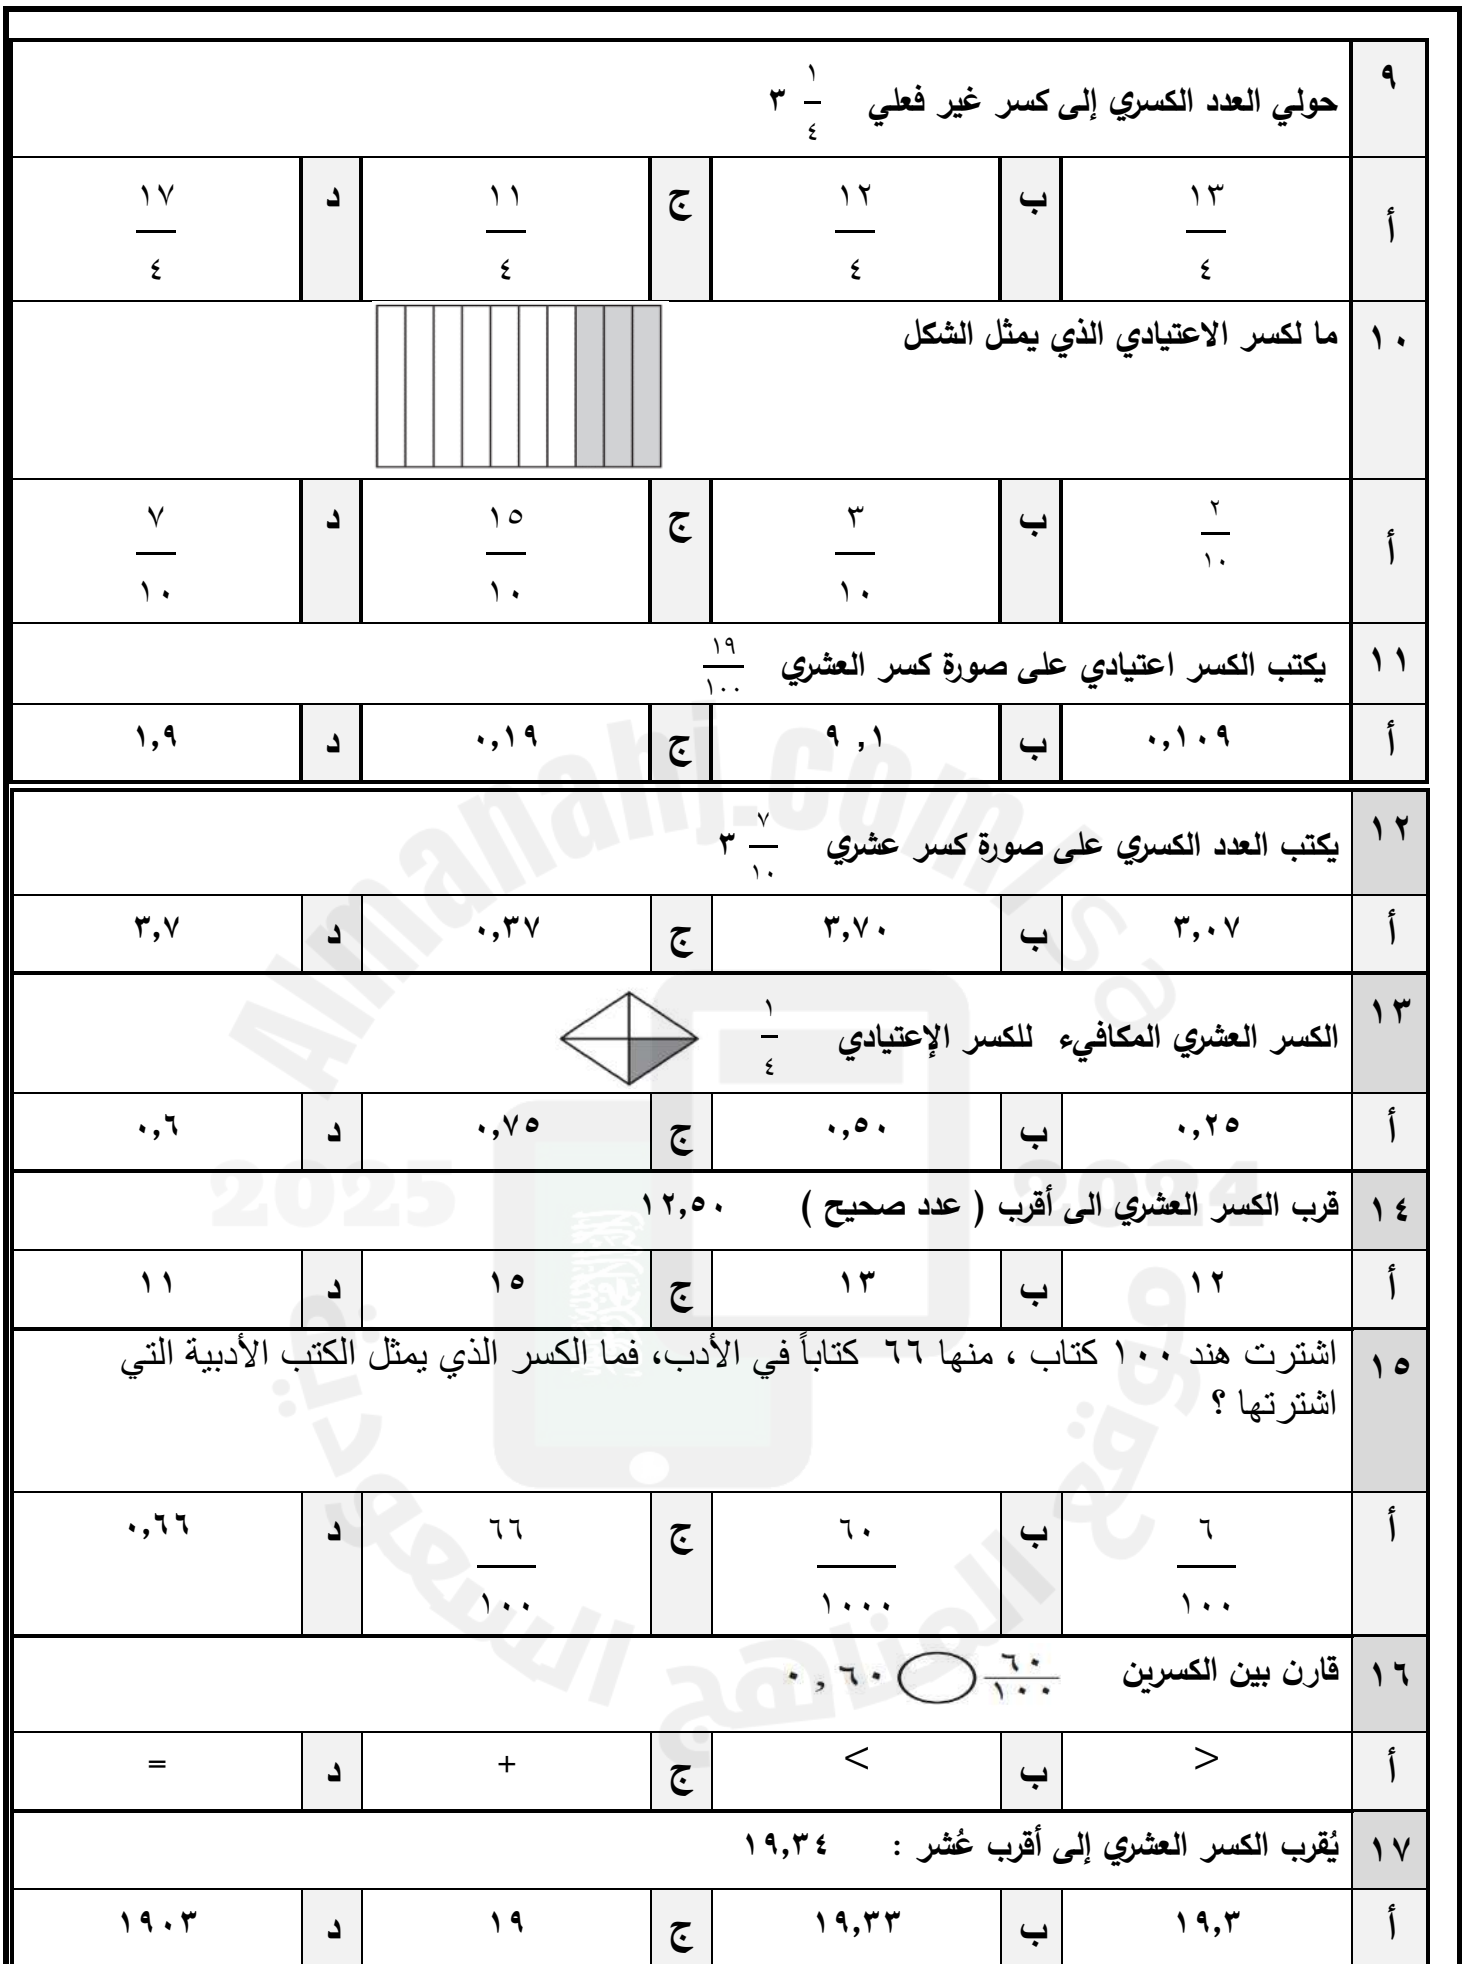 ٩ حولي العدد الكسري إلى كسر غير فعلي ٣ ١/٤
أ ١٣/٤ ب ١٢/٤ ج ١١/٤ د ١٧/٤
١٠ ما لكسر الاعتيادي الذي يمثل الشكل
أ ٢/١٠ ب ٣/١٠ ج ١٥/١٠ د ٧/١٠
١١ يكتب الكسر اعتيادي على صورة كسر العشري ١٩/١٠٠
أ ٠,١٠٩ ب ٩ ,١ ج ٠,١٩ د ١,٩
١٢ يكتب العدد الكسري على صورة كسر عشري ٣ ٧/١٠
أ ٣,٠٧ ب ٣,٧٠ ج ٠,٣٧ د ٣,٧
١٣ الكسر العشري المكافيء للكسر الإعتيادي ١/٤
أ ٠,٢٥ ب ٠,٥٠ ج ٠,٧٥ د ٠,٦
١٤ قرب الكسر العشري الى أقرب ( عدد صحيح ) ١٢,٥٠
أ ١٢ ب ١٣ ج ١٥ د ١١
١٥ اشترت هند ١٠٠ كتاب ، منها ٦٦ كتاباً في الأدب، فما الكسر الذي يمثل الكتب الأدبية التي
اشترتها ؟
أ ٦/١٠٠ ب ٦٠/١٠٠٠ ج ٦٦/١٠٠ د ٠,٦٦
١٦ قارن بين الكسرين ٦٠/١٠٠ ٠,٦٠
أ > ب < ج + د =
١٧ يُقرب الكسر العشري إلى أقرب عُشر : ١٩,٣٤
أ ١٩,٣ ب ١٩,٣٣ ج ١٩ د ١٩٠٣
Almanahj.com/sa
2025 2024
موقع المناهج السعودية